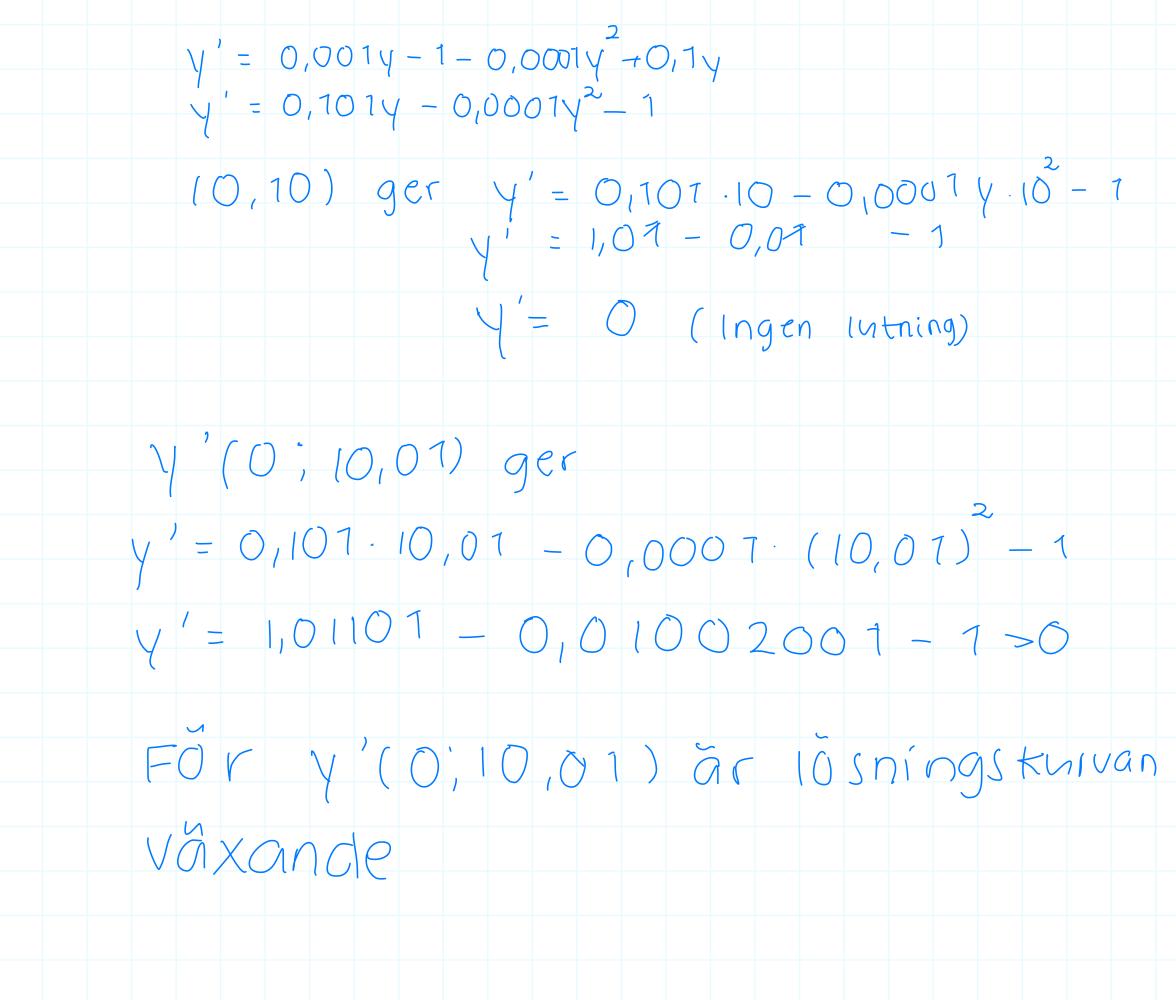 y' = 0,001y - 1 - 0,0001y² + 0,1y
y' = 0,101y - 0,0001y² - 1
(0,10) ger y' = 0,101 · 10 - 0,0001 y · 10² - 1
y' = 1,01 - 0,01 - 1
y' = 0 (Ingen lutning)
y'(0 ; 10,01) ger
y' = 0,101 · 10,01 - 0,0001 · (10,01)² - 1
y' = 1,01101 - 0,01002001 - 1 > 0
För y'(0; 10,01) är lösningskurvan
växande